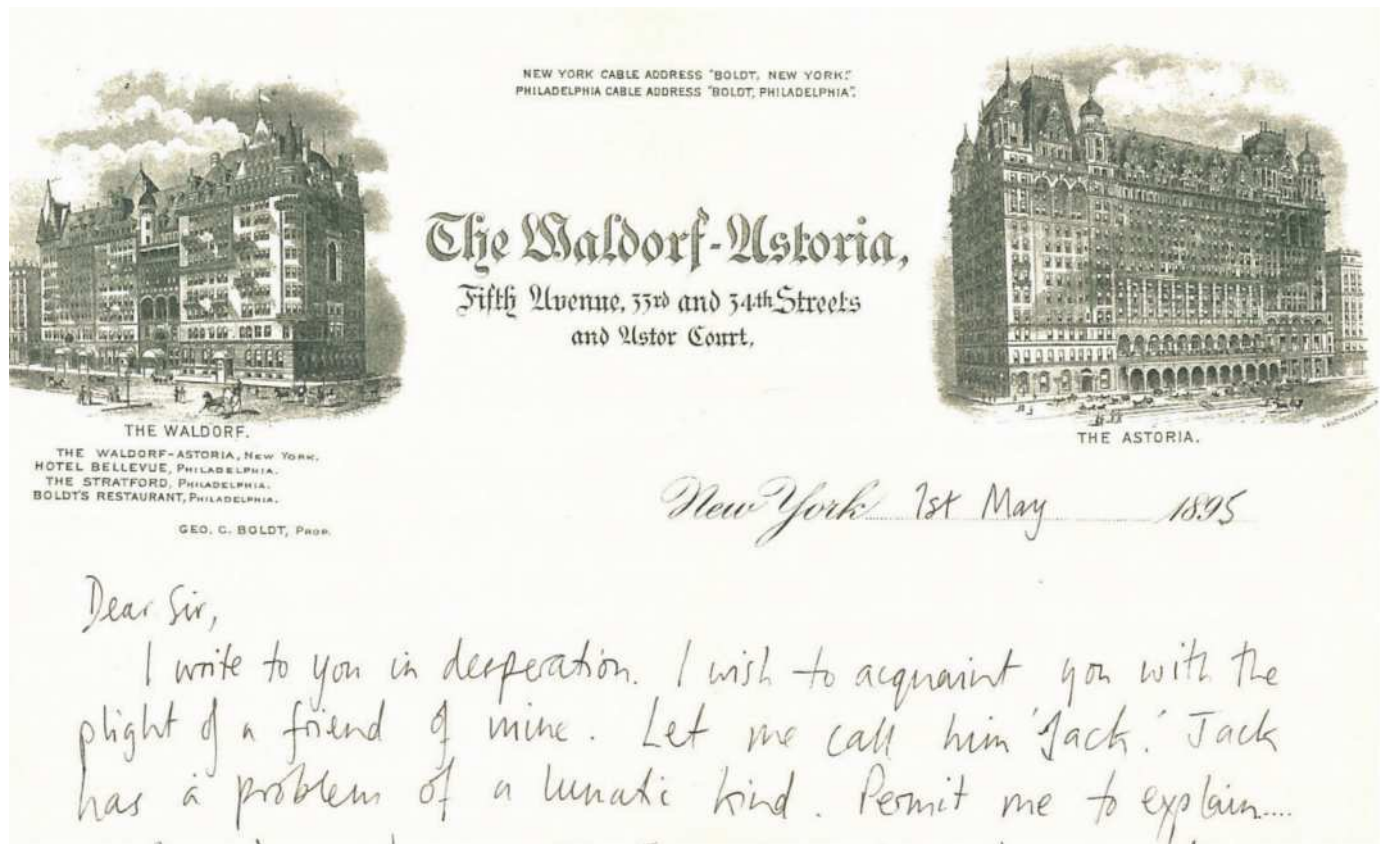 NEW YORK CABLE ADDRESS "BOLDT, NEW YORK."
PHILADELPHIA CABLE ADDRESS "BOLDT, PHILADELPHIA".
The Waldorf-Astoria,
Fifth Avenue, 33rd and 34th Streets
and Astor Court,
THE WALDORF.
THE WALDORF-ASTORIA, NEW YORK.
HOTEL BELLEVUE, PHILADELPHIA.
THE STRATFORD, PHILADELPHIA.
BOLDT'S RESTAURANT, PHILADELPHIA.
GEO. C. BOLDT, PROP.
THE ASTORIA.
New York 1st May 1895
Dear Sir,
I write to you in desperation. I wish to acquaint you with the
plight of a friend of mine. Let me call him 'Jack.' Jack
has a problem of a lunatic kind. Permit me to explain....